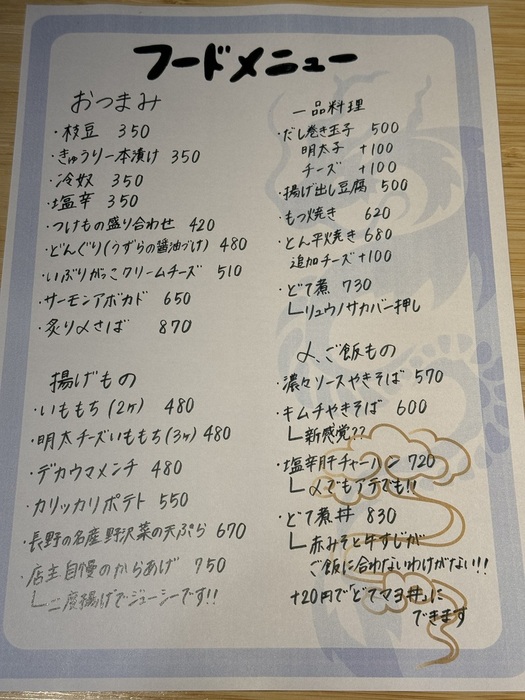 フードメニュー
おつまみ
・枝豆 350
・きゅうり一本漬け 350
・冷奴 350
・塩辛 350
・つけもの盛り合わせ 420
・どんぐり(うずらの醤油づけ) 480
・いぶりがっこクリームチーズ 510
・サーモンアボカド 650
・炙り〆さば 870
揚げもの
・いももち(2ヶ) 480
・明太チーズいももち(3ヶ) 480
・デカウマメンチ 480
・カリッカリポテト 550
・長野の名産野沢菜の天ぷら 670
・店主自慢のからあげ 750
└二度揚げでジューシーです!!
一品料理
・だし巻き玉子 500
明太子 +100
チーズ +100
・揚げ出し豆腐 500
・もつ焼き 620
・とん平焼き 680
追加チーズ+100
・どて煮 730
└リュウノサカバー押し
〆、ご飯もの
・濃々ソースやきそば 570
・キムチやきそば 600
└新感覚??
・塩辛チャーハン 720
└〆でもアテでも!!
・どて煮丼 830
└赤みそと牛すじが
ご飯に合わないわけがない!!
+20円で「どてマヨ丼」に
できます